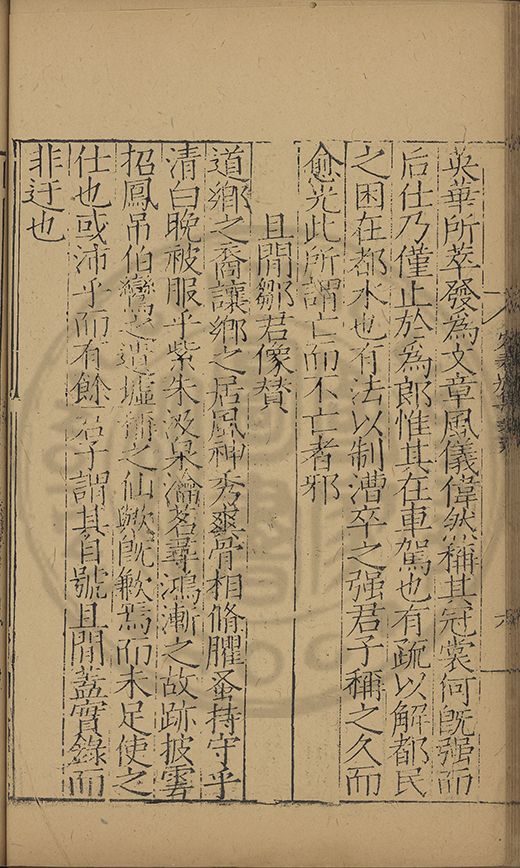 英華所萃發為文章風儀偉然稱其冠裳何既强而
后仕乃僅止於為郎惟其在車駕也有疏以解都民
之困在都水也有法以制漕卒之强君子稱之久而
愈光此所謂亡而不亡者邪
且閒鄒君像賛
道鄉之裔讓鄉之居風神秀爽骨相脩臞蚤持守乎
清白晚被服乎紫朱汲泉瀹茗尋鴻漸之故跡披雲
招鳳吊伯鸞之遺墟鄒之仙歟既歉焉而未足使之
仕也或沛乎而有餘君子謂其自號且閒蓋實錄而
非迂也